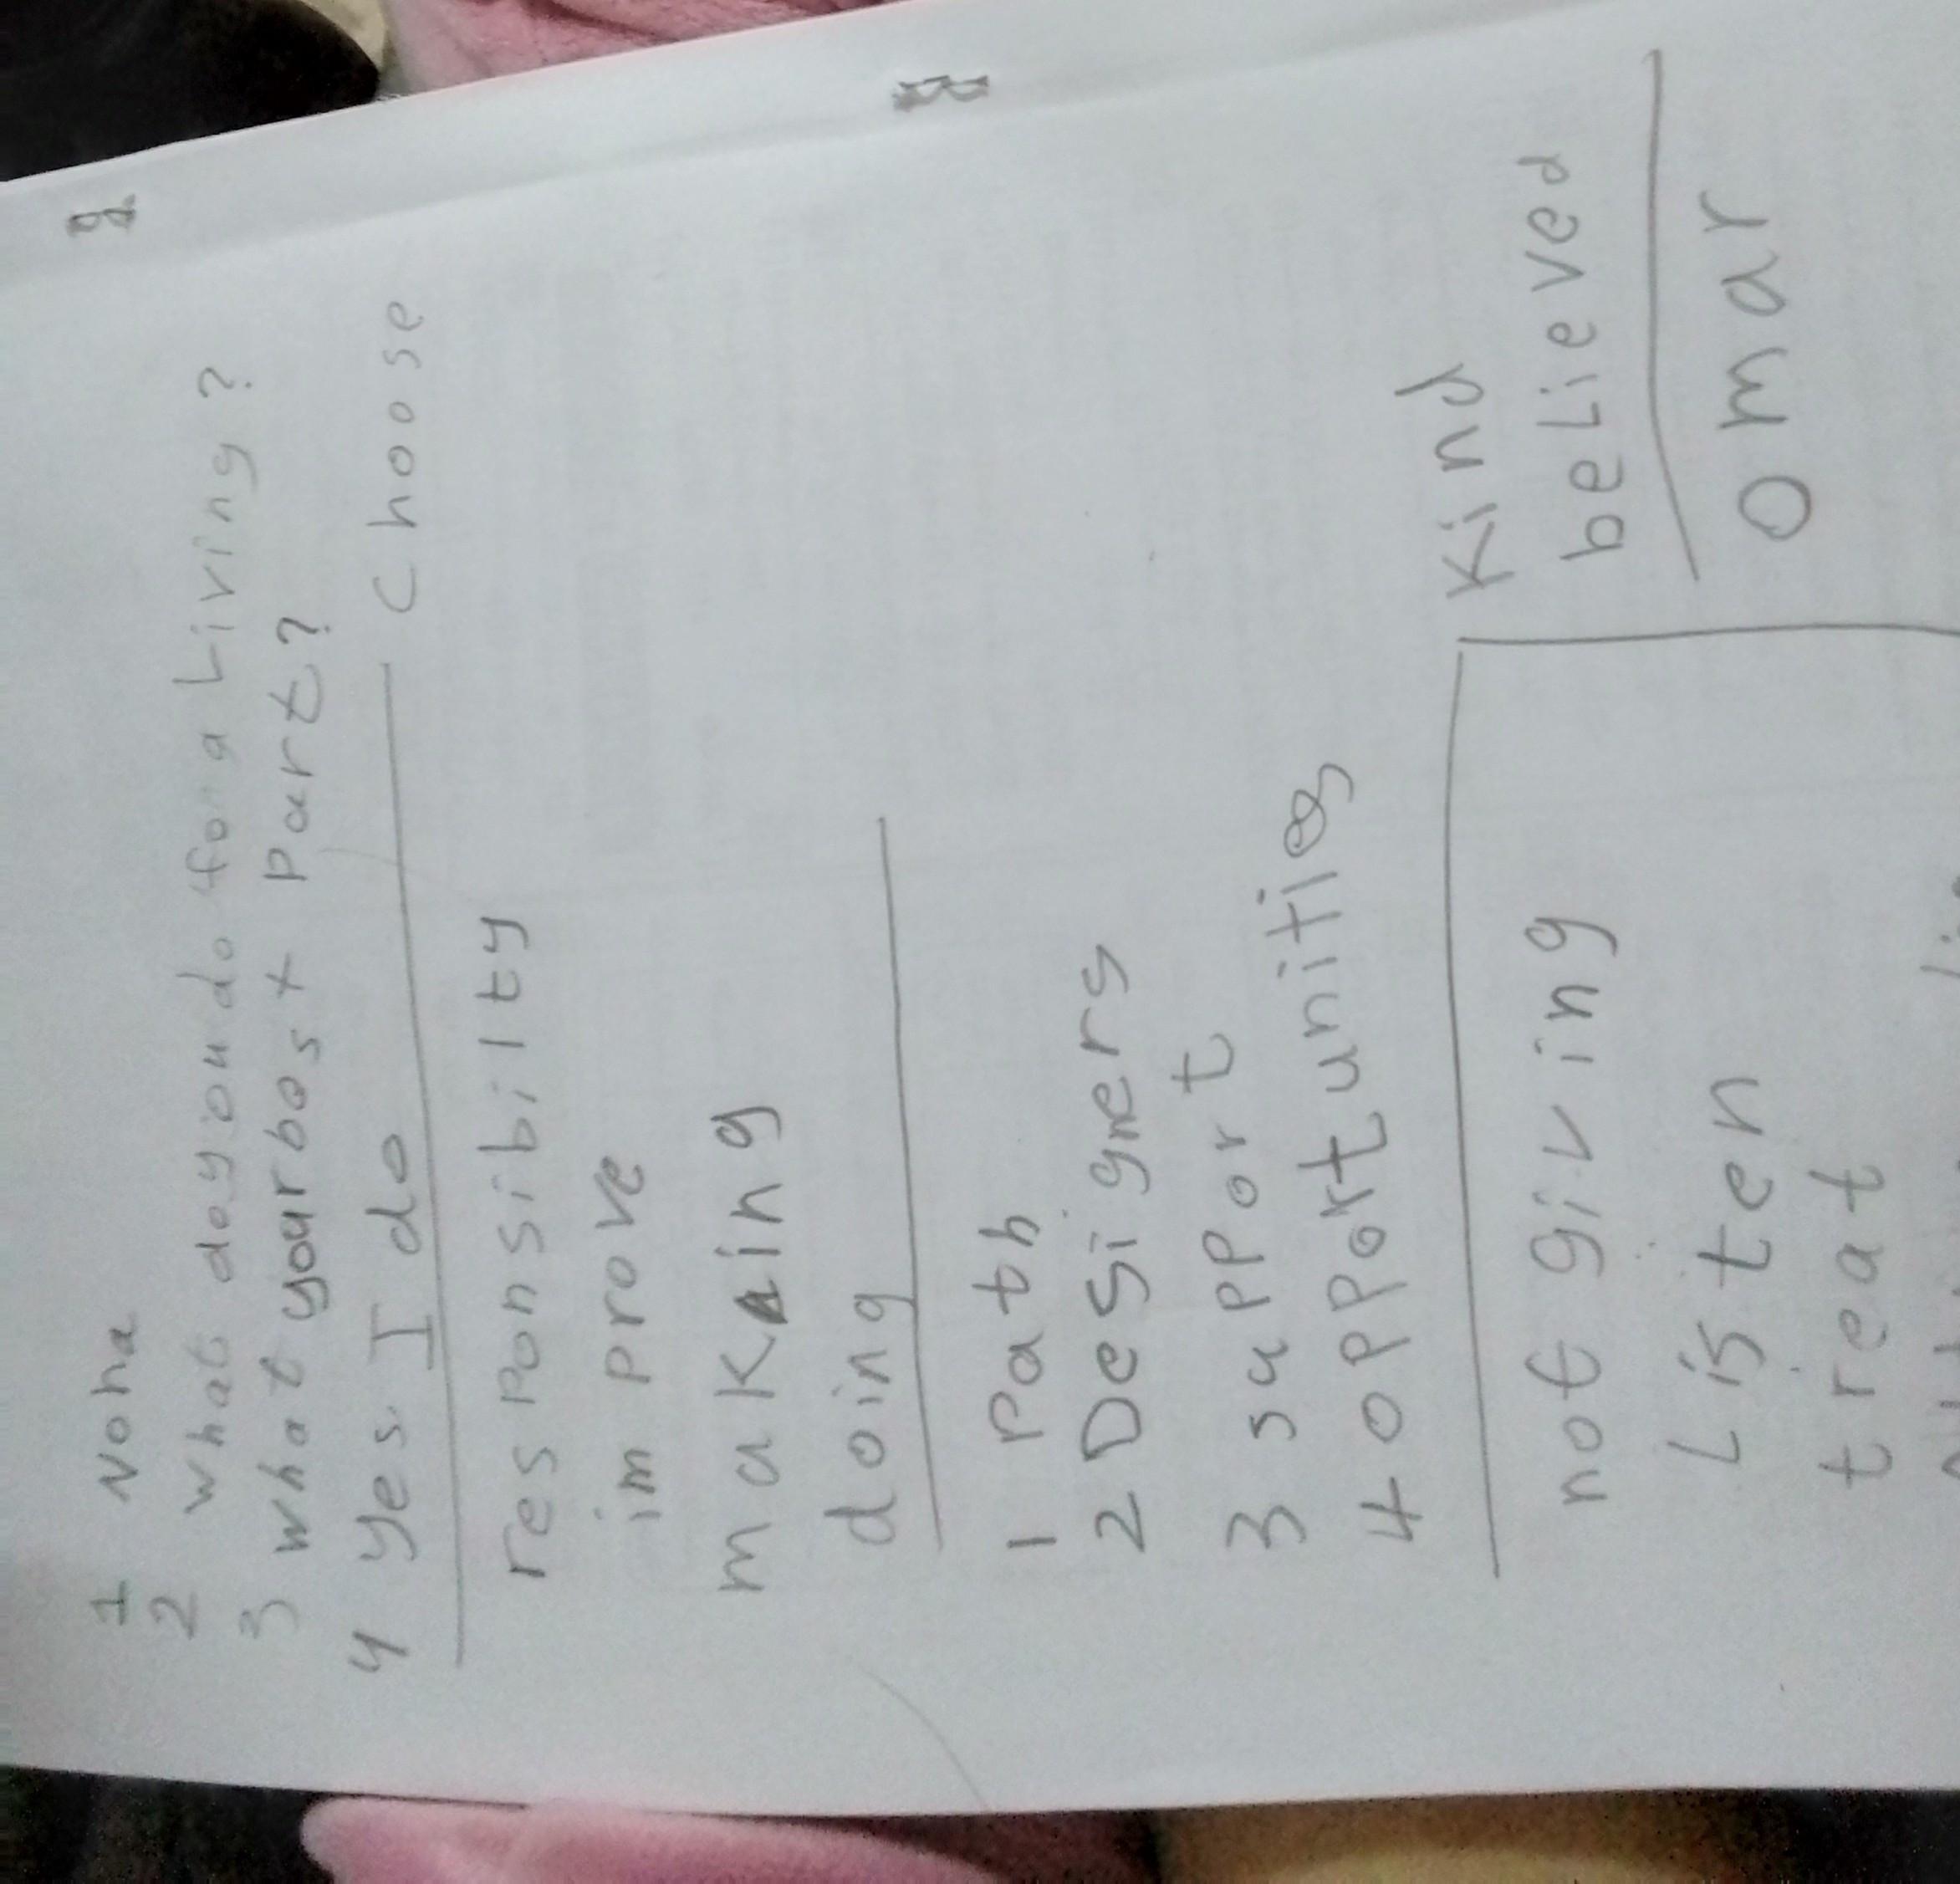 1 Noha
2 what do you do for a Living?
3 what your best part?
4 yes. I do
Choose
responsibilty
improve
making
doing
1 Path
2 Designers
3 support
4 opportunities
not giving
Listen
treat
Kind
believed
omar